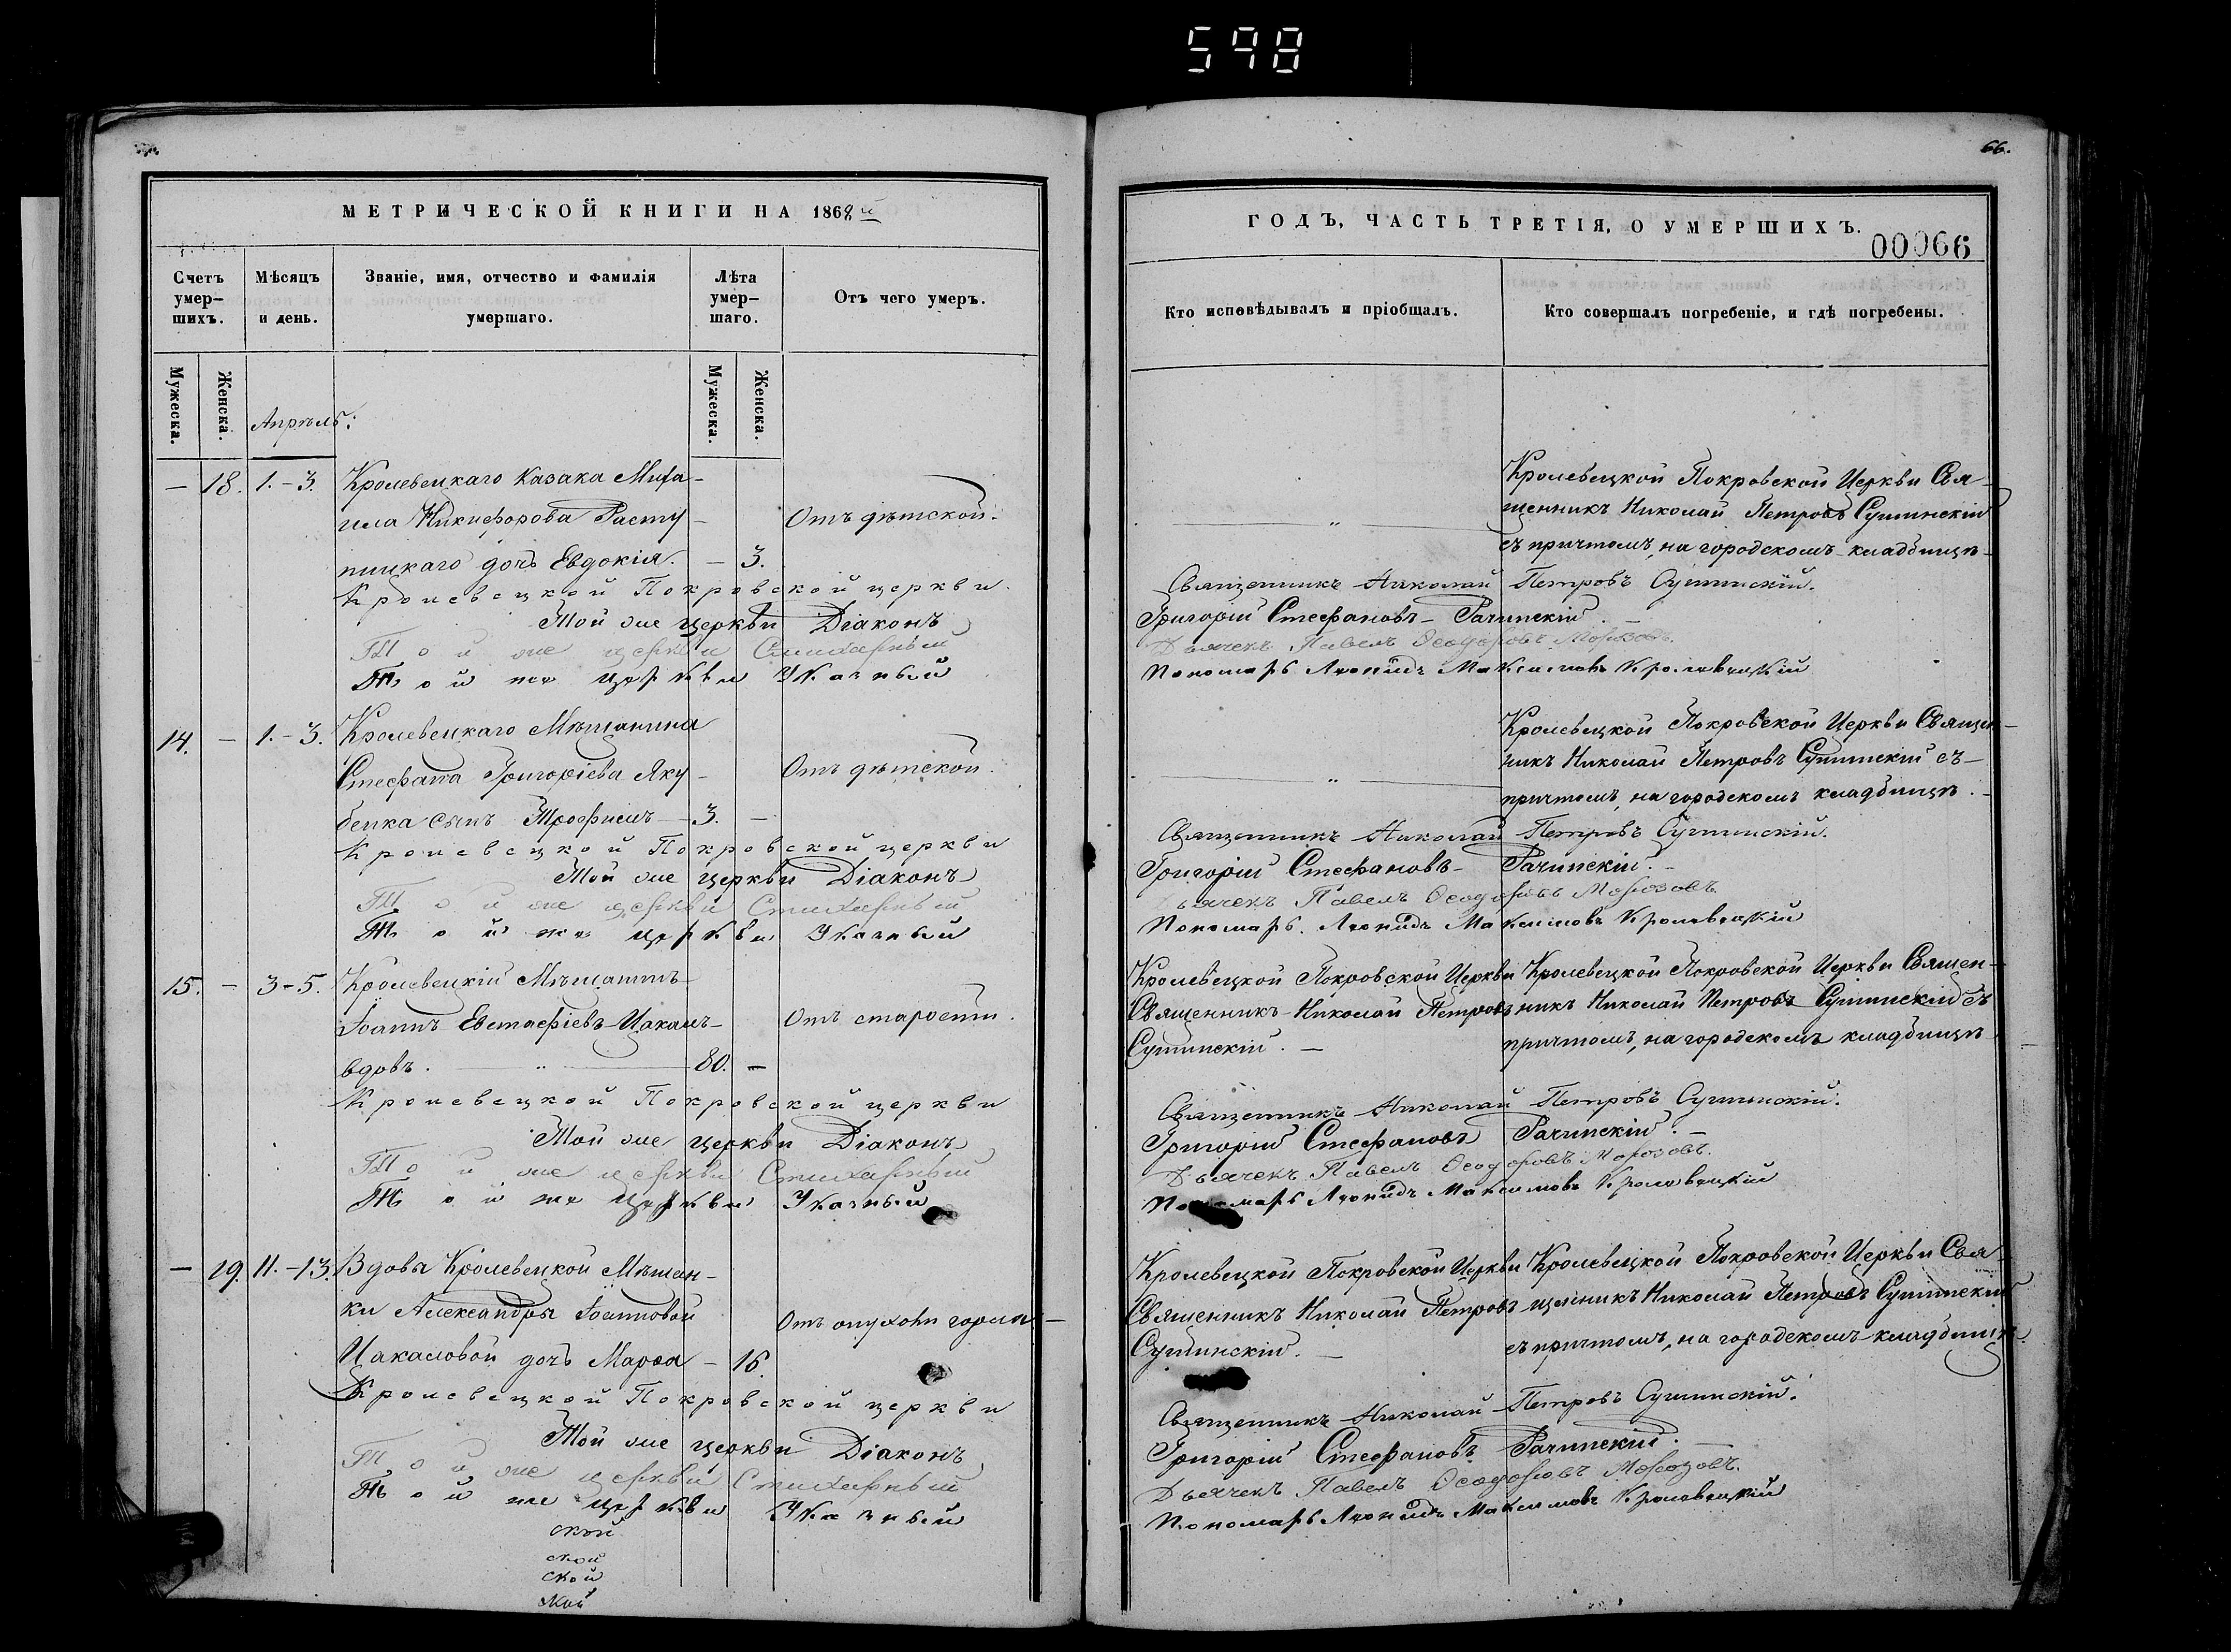 598
66.
МЕТРИЧЕСКОЙ КНИГИ НА 1868й
ГОДЪ, ЧАСТЬ ТРЕТІЯ, О УМЕРШИХЪ.
00066
Счетъ умер-шихъ.
Мѣсяцъ и день.
Званіе, имя, отчество и фамилія умершаго.
Лѣта умер-шаго.
Отъ чего умеръ.
Кто исповѣдывалъ и пріобщалъ.
Кто совершалъ погребеніе, и гдѣ погребены.
Мужеска.
Женска.
Мужеска.
Женска.
Апрѣль:
— 18. 1.-3. Кролевецкаго Казака Миха-
ила Никифорова Расту-
пицкаго дочь Евдокія. — 3.
Отъ дѣтской.
Кролевецкой Покровской Церкви Свя-
щенникъ Николай Петровъ Сушинскій
съ причтомъ, на городскомъ кладбищѣ
Кролевецкой Покровской церкви Священникъ Николай Петровъ Сушинскій.
Той же церкви Діаконъ Григорій Стефановъ Рачинскій.
Той же церкви Стихарный Дьячекъ Павелъ Ѳеодоровъ Морозовъ
Той же церкви Указный Пономарь Леонидъ Максимовъ Кролевецкій
14. — 1.-3. Кролевецкаго Мѣщанина
Стефана Григоріева Яку-
бенка сынъ Трофимъ 3. —
Отъ дѣтской.
Кролевецкой Покровской Церкви Священ-
никъ Николай Петровъ Сушинскій съ
причтомъ, на городскомъ кладбищѣ.
Кролевецкой Покровской церкви Священникъ Николай Петровъ Сушинскій.
Той же церкви Діаконъ Григорій Стефановъ Рачинскій.
Той же церкви Стихарный Дьячекъ Павелъ Ѳеодоровъ Морозовъ
Той же церкви Указный Пономарь Леонидъ Максимовъ Кролевецкій
15. — 3-5. Кролевецкій Мѣщанинъ
Іоаннъ Евстафіевъ Цакалъ
вдовъ. 80. —
Отъ старости.
Кролевецкой Покровской Церкви
Священникъ Николай Петровъ
Сушинскій.
Кролевецкой Покровской Церкви Священ-
никъ Николай Петровъ Сушинскій съ
причтомъ, на городскомъ кладбищѣ
Кролевецкой Покровской церкви Священникъ Николай Петровъ Сушинскій.
Той же церкви Діаконъ Григорій Стефановъ Рачинскій.
Той же церкви Стихарный Дьячекъ Павелъ Ѳеодоровъ Морозовъ.
Той же церкви Указный Пономарь Леонидъ Максимовъ Кролевецкій
— 19. 11.-13. Вдовы Кролевецкой Мѣщан-
ки Александры Іоанновой
Цакаловой дочь Марѳа — 16.
Отъ опухоли горла
Кролевецкой Покровской Церкви
Священникъ Николай Петровъ
Сушинскій.
Кролевецкой Покровской Церкви Свя-
щенникъ Николай Петровъ Сушинскій
съ причтомъ, на городскомъ кладбищѣ.
Кролевецкой Покровской церкви Священникъ Николай Петровъ Сушинскій.
Той же церкви Діаконъ Григорій Стефановъ Рачинскій.
Той же церкви Стихарный Дьячекъ Павелъ Ѳеодоровъ Морозовъ.
Той же церкви Указный Пономарь Леонидъ Максимовъ Кролевецкій
ской
ской
ской